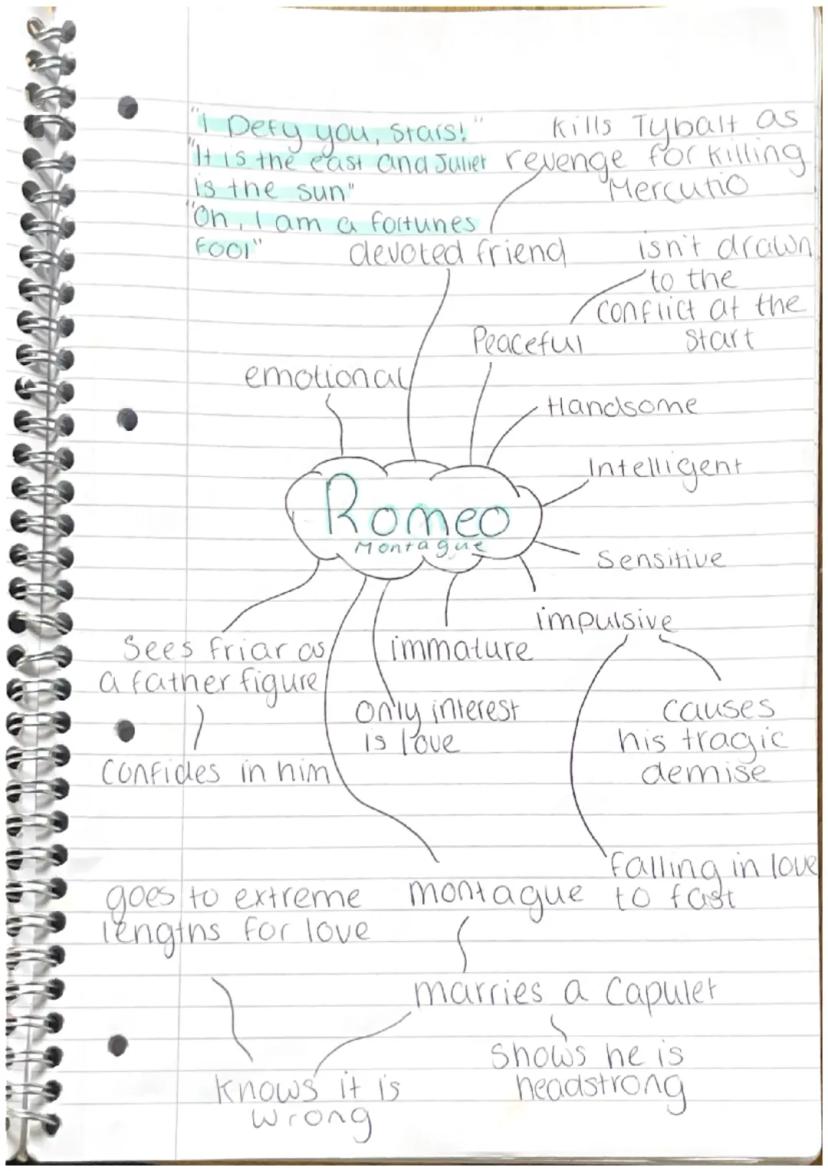 "I Defy you, Stars!"
"It is the east and Juliet
is the sun"
"Oh, I am a fortunes
fool"
Kills Tybalt as
revenge for killing
Mercutio
devoted friend
isn't drawn
to the
conflict at the
start
Peaceful
emotional
Handsome
Intelligent
Romeo
Montague
Sensitive
impulsive
Sees friar as
a father figure
immature
only interest
is love
causes
his tragic
demise
confides in him
falling in love
to fast
goes to extreme
lengths for love
montague
marries a Capulet
Shows he is
headstrong
knows it is
wrong